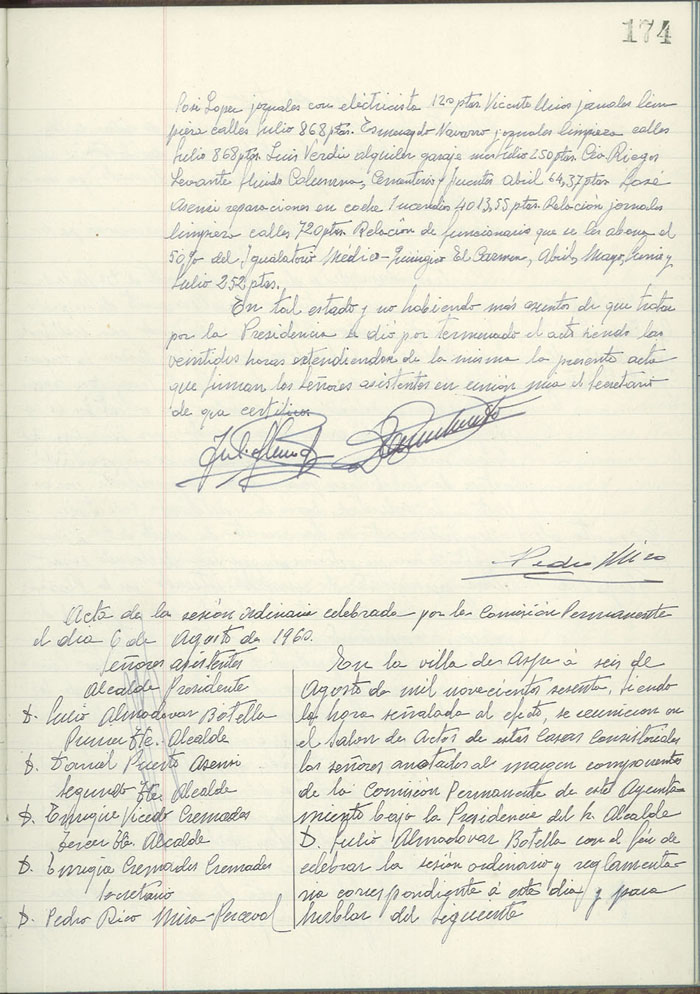 174
José Lopez jornales con electricista 120 ptas. Vicente jornales lim
pieza calles Julio 868 ptas. Esmeragdo Navarro jornales limpieza calles
Julio 868 ptas. Luis Verdú alquiler garaje mes Julio 250 ptas. Cia Riegos
Levante fluido Columna, Cementerio y fuentes Abril 64,37 ptas. José
Asensi reparaciones en coche Incendios 4013,55 ptas. Relación jornales
limpieza calles 720 ptas. Relación de funcionarios que se les abona el
50% del Igualatorio Médico-Quirurgico El Carmen, Abril, Mayo, Junio y
Julio 252 ptas.
En tal estado y no habiendo más asuntos de que tratar
por la Presidencia se dió por terminado el acto siendo las
veintidos horas extendiendose de la misma la presente acta
que firman los Señores asistentes en union mia el Secretario
de que certifico
Pedro Rico
Acta de la sesión ordinaria celebrada por la Comisión Permanente
el dia 6 de Agosto de 1960.
Señores asistentes
Alcalde Presidente
D. Julio Almodovar Botella
Primer Tte. Alcalde
D. Daniel Puerto Asensi
Segundo Tte. Alcalde
D. Enrique Vicedo Cremades
Tercer Tte. Alcalde
D. Enrique Cremades Cremades
Secretario
D. Pedro Rico Mira-Perceval
En la villa de Aspe á seis de
Agosto de mil novecientos sesenta, siendo
la hora señalada al efecto, se reunieron en
el Salon de Actos de estas Casas Consistoriales
los señores anotados al margen componentes
de la Comisión Permanente de este Ayunta-
miento bajo la Presidencia del Sr. Alcalde
D. Julio Almodovar Botella con el fin de
celebrar la sesión ordinaria y reglamenta-
ria correspondiente á este dia y para
hablar del siguiente